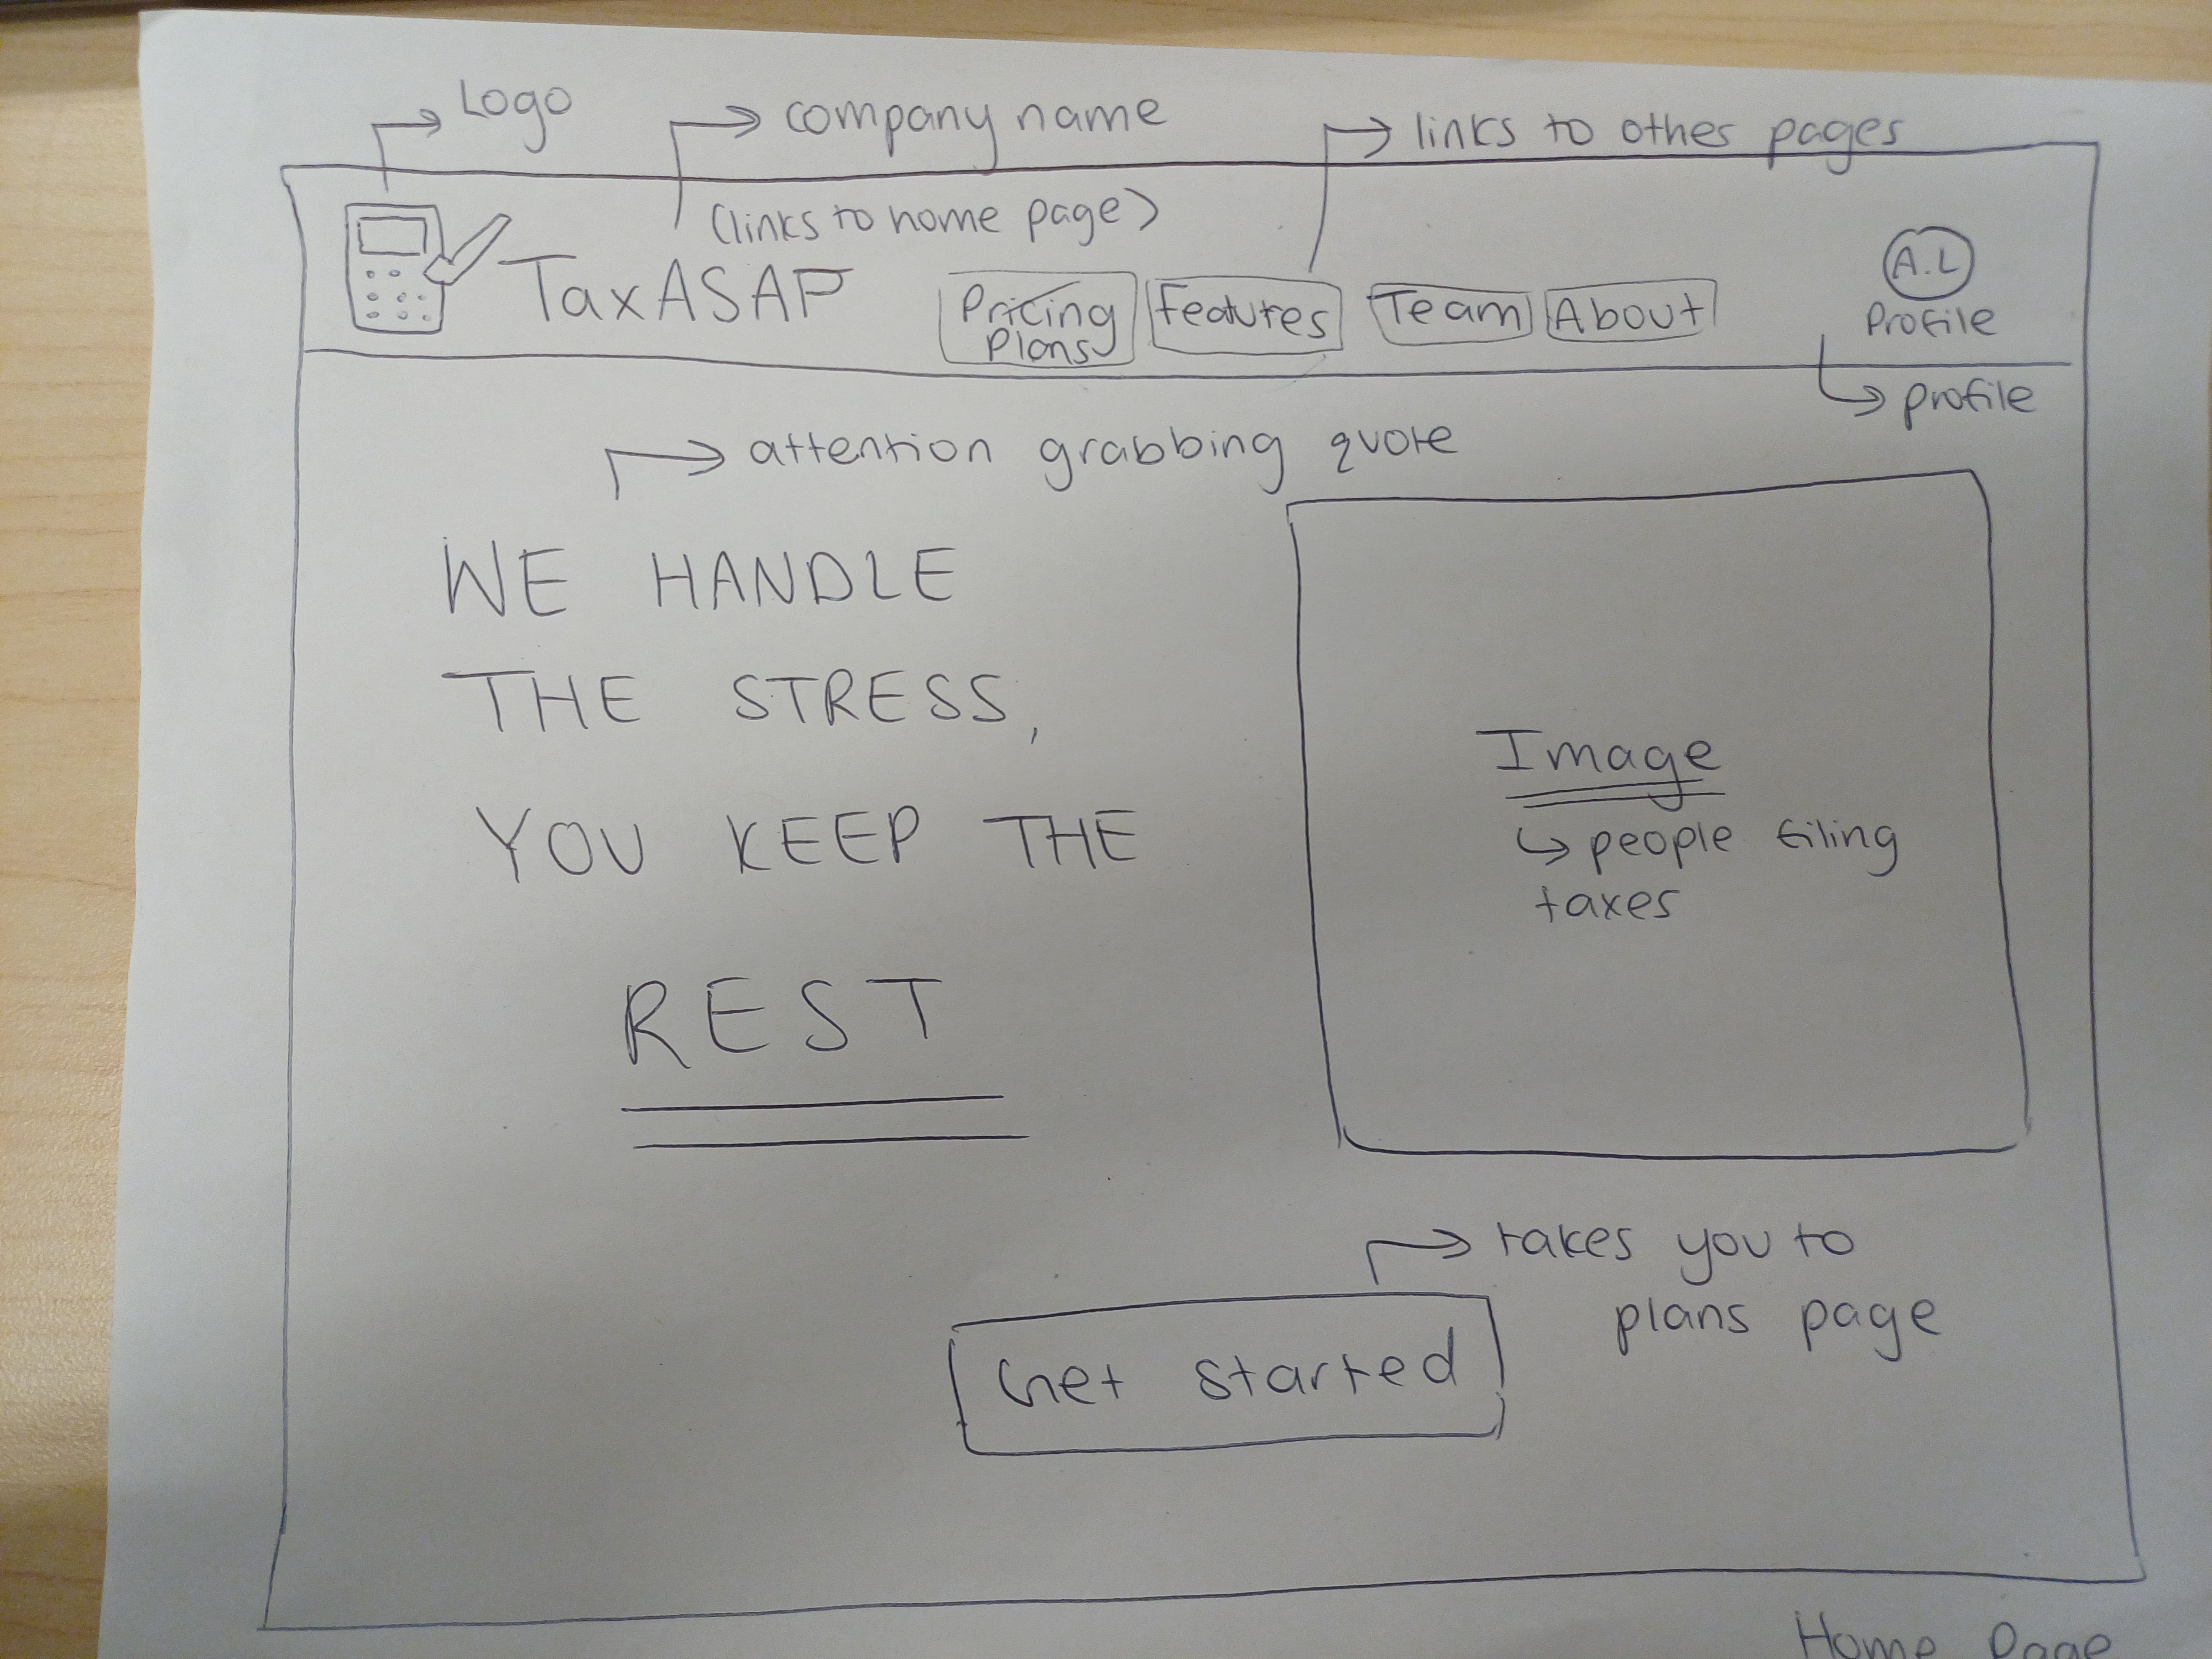 Logo
company name
links to other pages
(links to home page)
TaxASAP
Pricing
Plans
Features
Team
About
A.L
Profile
profile
attention grabbing quote
WE HANDLE
THE STRESS,
YOU KEEP THE
REST
Image
people filing
taxes
takes you to
plans page
Get started
Home Page